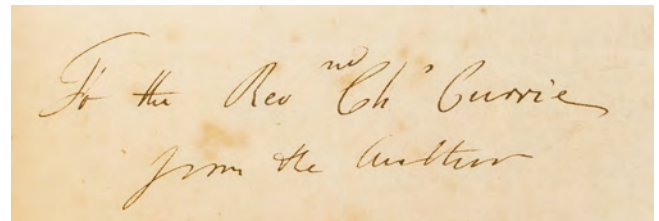 To the Revnd Chs Currie
from the Author